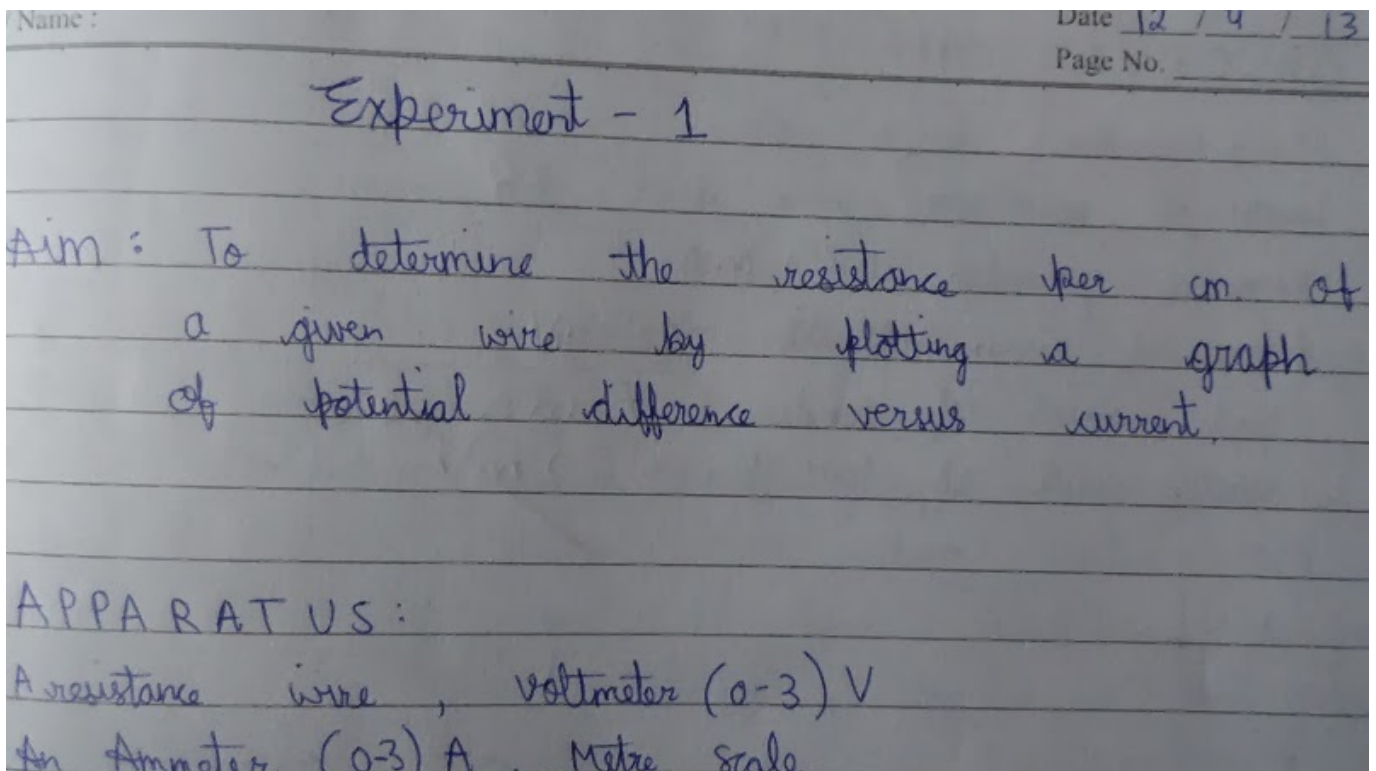 Name :
Date 12 / 4 / 13
Page No.
Experiment - 1
Aim : To determine the resistance per cm of
a given wire by plotting a graph
of potential difference versus current.
APPARATUS :
A resistance wire , voltmeter (0-3) V
An Ammeter (0-3) A , Metre Scale